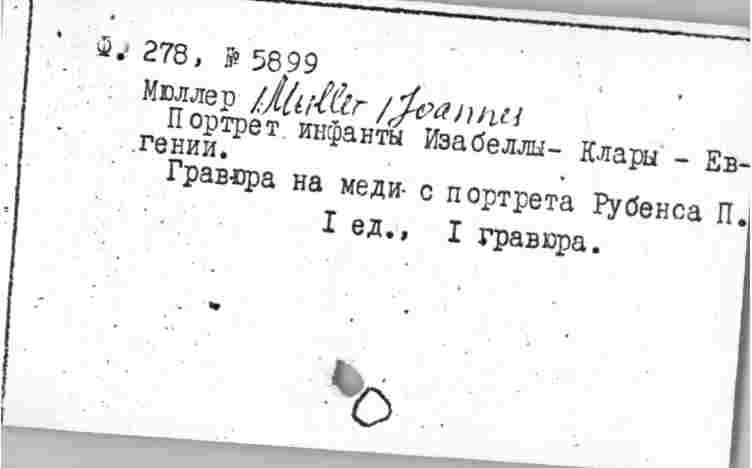 Ф. 278, № 5899
Мюллер /Muller / Joannes
Портрет инфанты Изабеллы- Клары - Ев-
гении.
Гравюра на меди с портрета Рубенса П.
I ед., I гравюра.